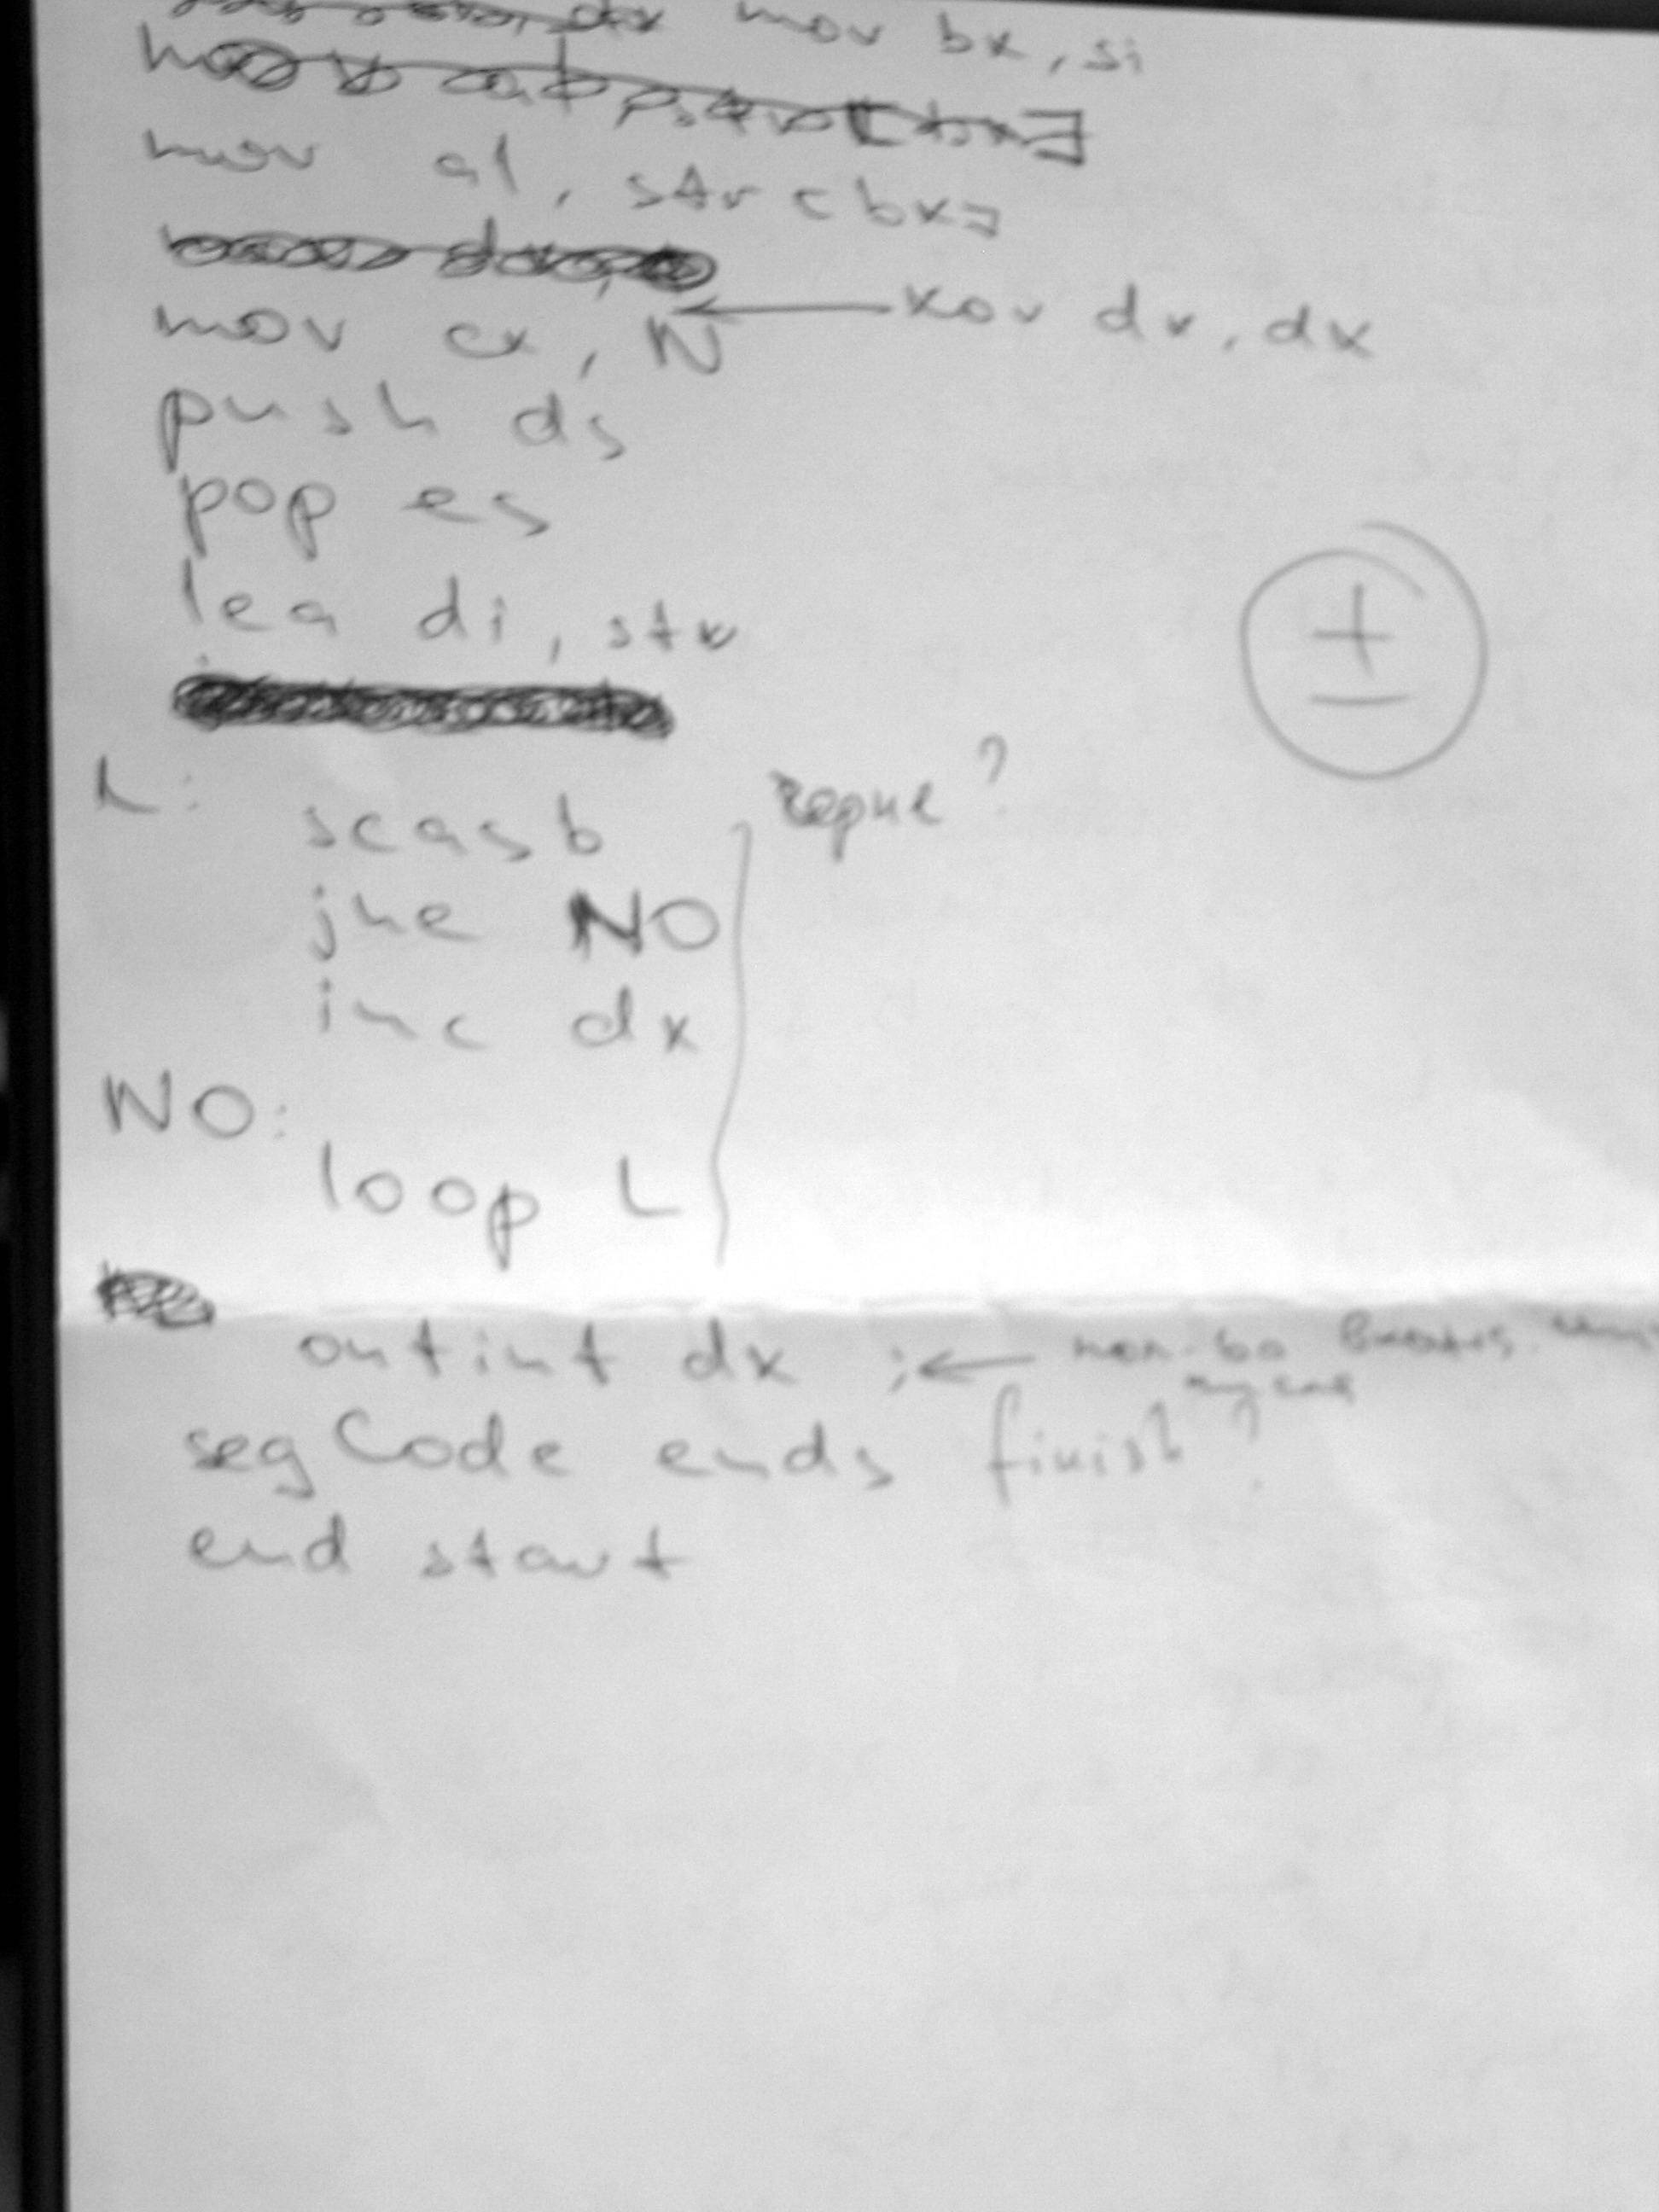 mov bx, si
mov al, str[bx]
xor dx, dx
mov cx, N
push ds
pop es
lea di, str
±
L:
repne?
scasb
jne NO
inc dx
NO:
loop L
outint dx ; ← кол-во
segCode ends finish?
end start